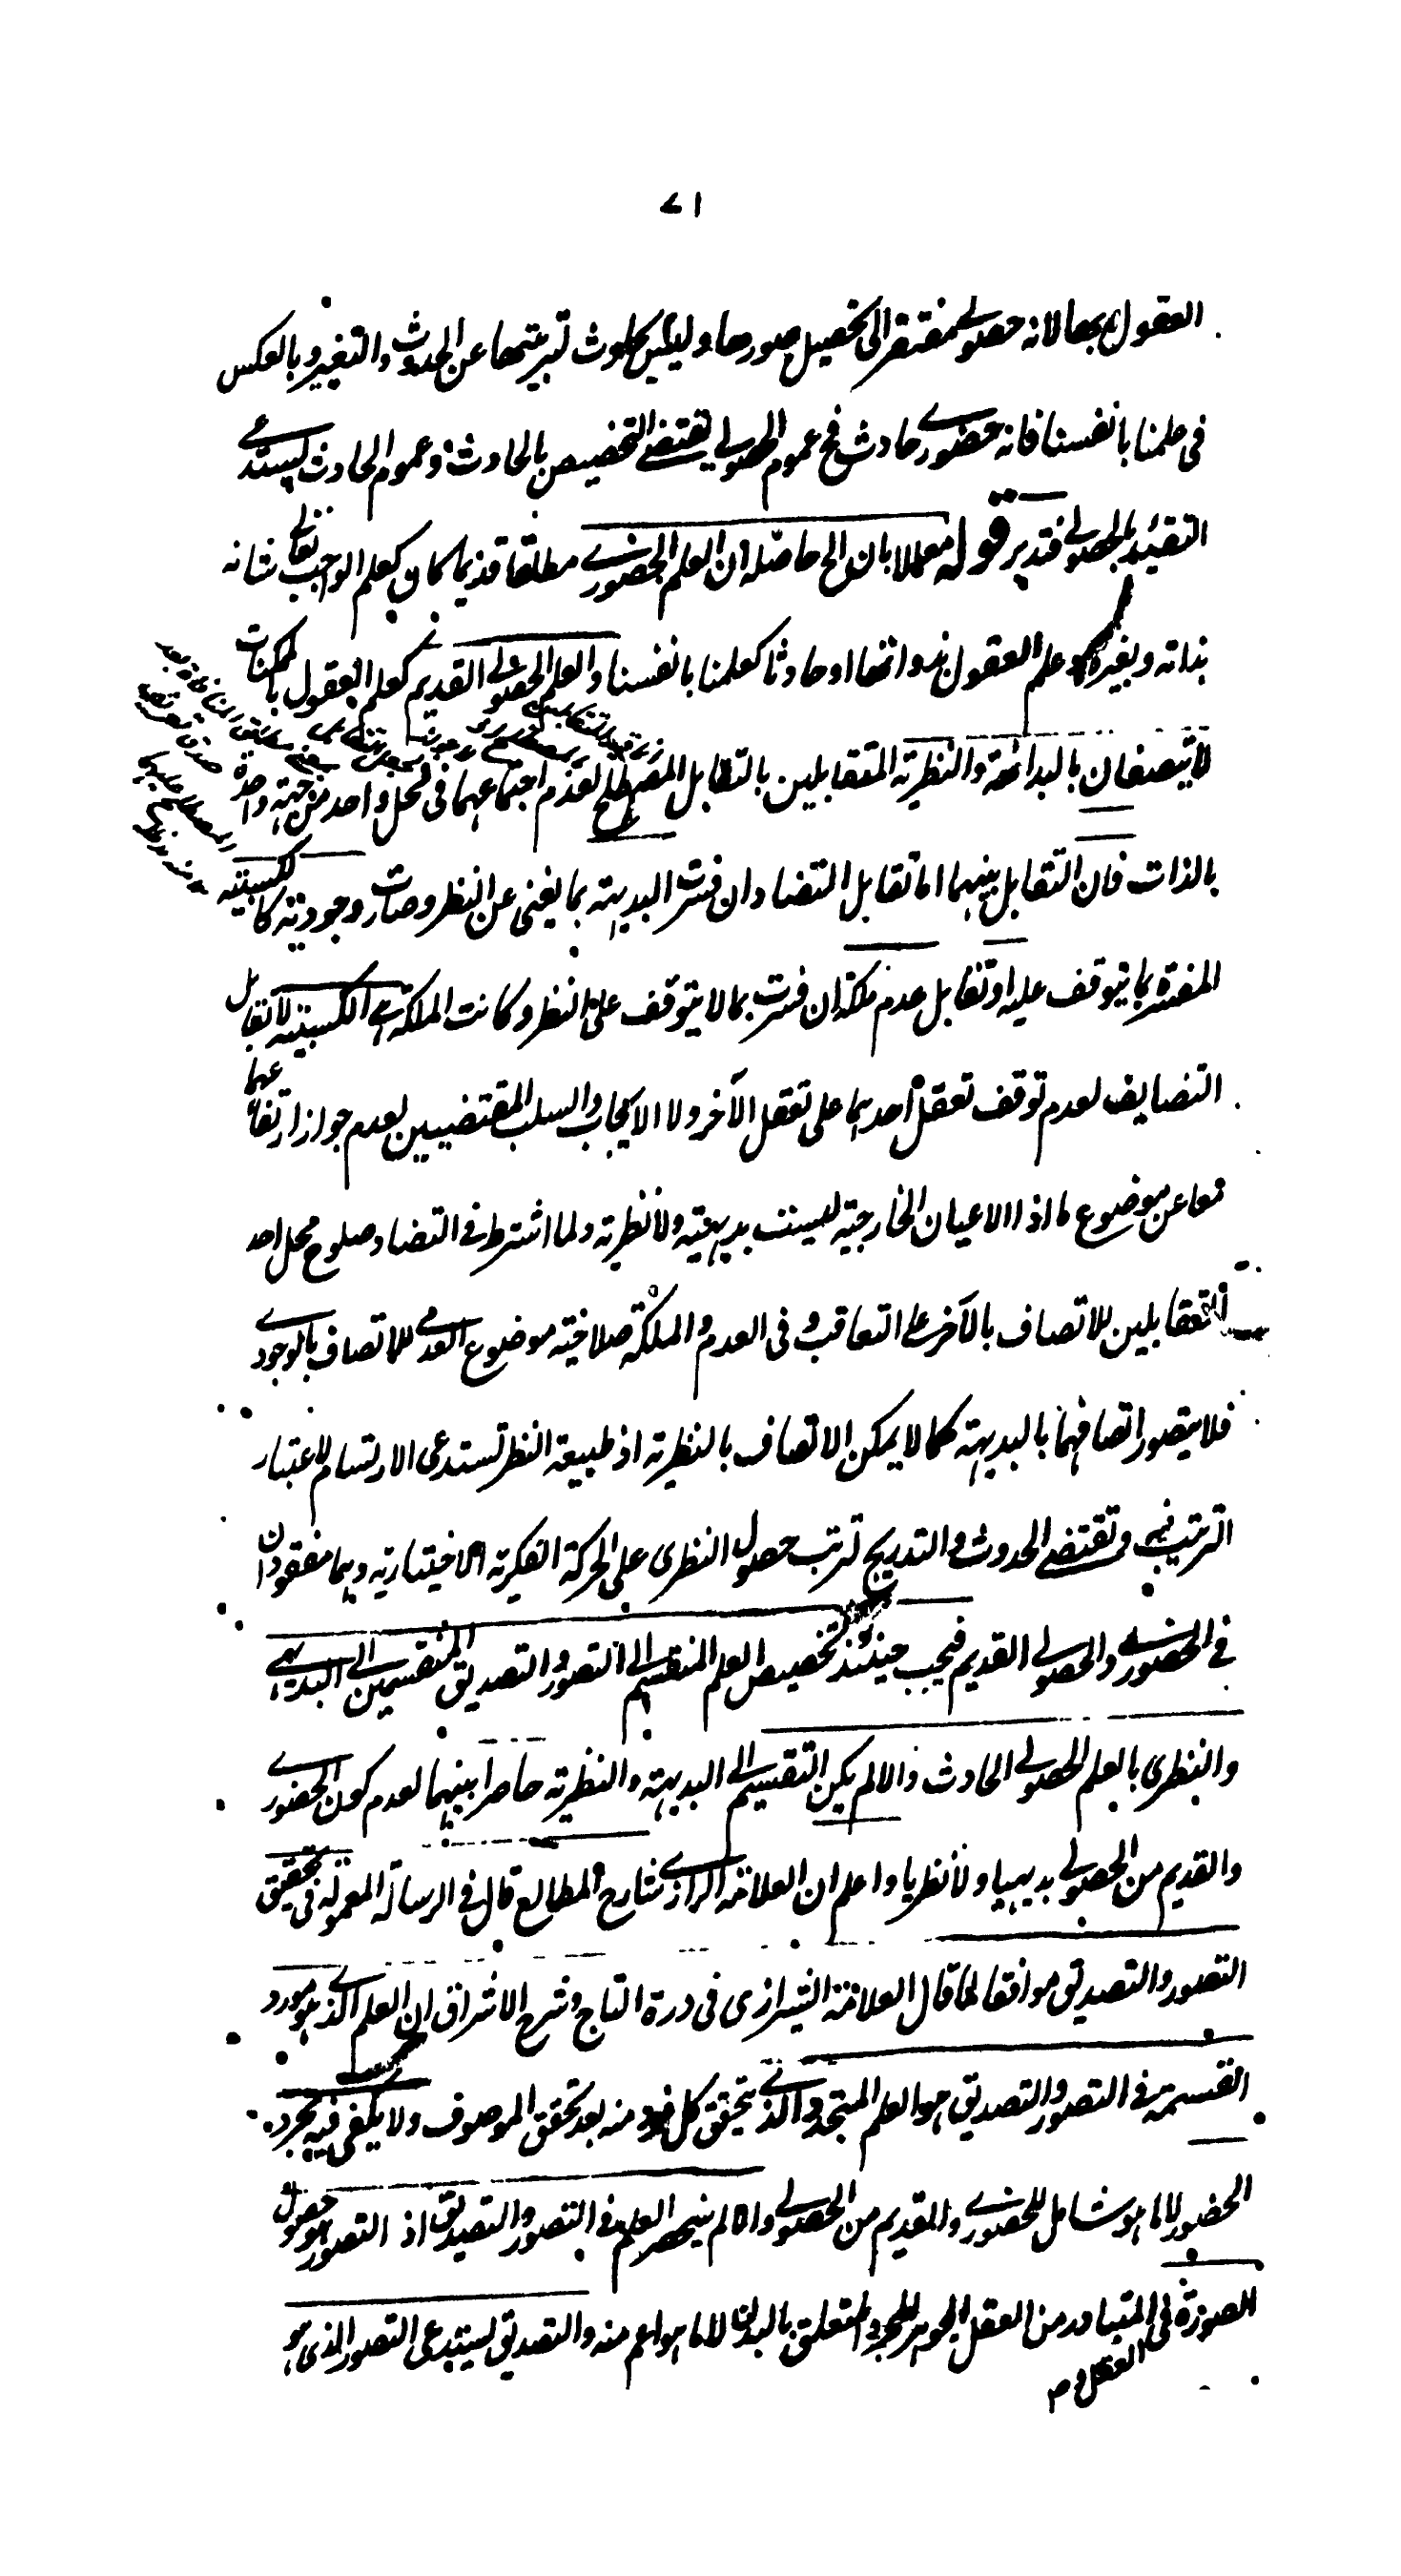 ٧١
العقول بها لانه حصولي مفتقر الى تحصيل صورها وليس بحادث لتبرئتها عن الحدوث والتغير وبالعكس
في علمنا بانفسنا فانه حضوري حادث فح عموم الحصولي يقتضي التخصيص بالحادث وعموم الحادث يستدعي
التقييد بالحصولي فتدبر قوله معللا بان الخ حاصله ان العلم الحضوري مطلقا قديما كان كعلم الواجب تعالى شانه
بذاته وبغيره وعلم العقول بذواتها او حادثا كعلمنا بانفسنا والعلم الحصولي القديم كعلم العقول بالممكنات
لا يتصفان بالبداهة والنظرية المتقابلين بالتقابل المصطلح لعدم اجتماعهما في محل واحد من جهة واحدة
بالذات فان التقابل بينهما اما تقابل التضاد ان فسرت البديهة بما يغني عن النظر وصارت وجودية كالكسبية
المفسرة بما يتوقف عليه او تقابل عدم ملكة ان فسرت بما لا يتوقف على النظر وكانت الملكة هي الكسبية لا تقابل
التضايف لعدم توقف تعقل احدهما على تعقل الآخر ولا الايجاب والسلب المقتضيين لعدم جواز ارتفاعهما
معا عن موضوع ما اذ الاعيان الخارجية ليست بديهية ولا نظرية ولما اشترط في التضاد صلوح محل احد
المتقابلين للاتصاف بالآخر على التعاقب وفي العدم والملكة صلاحية موضوع العدمي للاتصاف بالوجودي
فلا يتصور اتصافهما بالبديهة كما لا يمكن الاتصاف بالنظرية اذ طبيعة النظر تستدعى الارتسام لاعتبار
الترتيب فيه وتقتضي الحدوث والتدريج لترتب حصول النظرى على الحركة الفكرية الاختيارية وهما مفقودان
في الحضوري والحصولي القديم فيجب حينئذ تخصيص العلم المنقسم الى التصور والتصديق المنقسمين الى البديهي
والنظرى بالعلم الحصولي الحادث والا لم يكن التقسيم الى البديهة والنظرية حاصرا بينهما لعدم كون الحضوري
والقديم من الحصولي بديهيا ولا نظريا واعلم ان العلامة الرازي شارح المطالع قال في الرسالة المعمولة في تحقيق
التصور والتصديق موافقا لما قال العلامة الشيرازى في درة التاج وشرح الاشراق ان العلم الذي هو مورد
القسمة في التصور والتصديق هو العلم المتجدد الذي يتحقق كل فرد منه بعد تحقق الموصوف ولا يكفي فيه مجرد
الحضور لا ما هو شامل للحضوري والقديم من الحصولي والا لم ينحصر العلم في التصور والتصديق اذ التصور هو حصول
الصورة في العقل والمتبادر من العقل الجوهر المجرد المتعلق بالبدن لا ما هو اعم منه والتصديق يستدعى التصور الذى هو